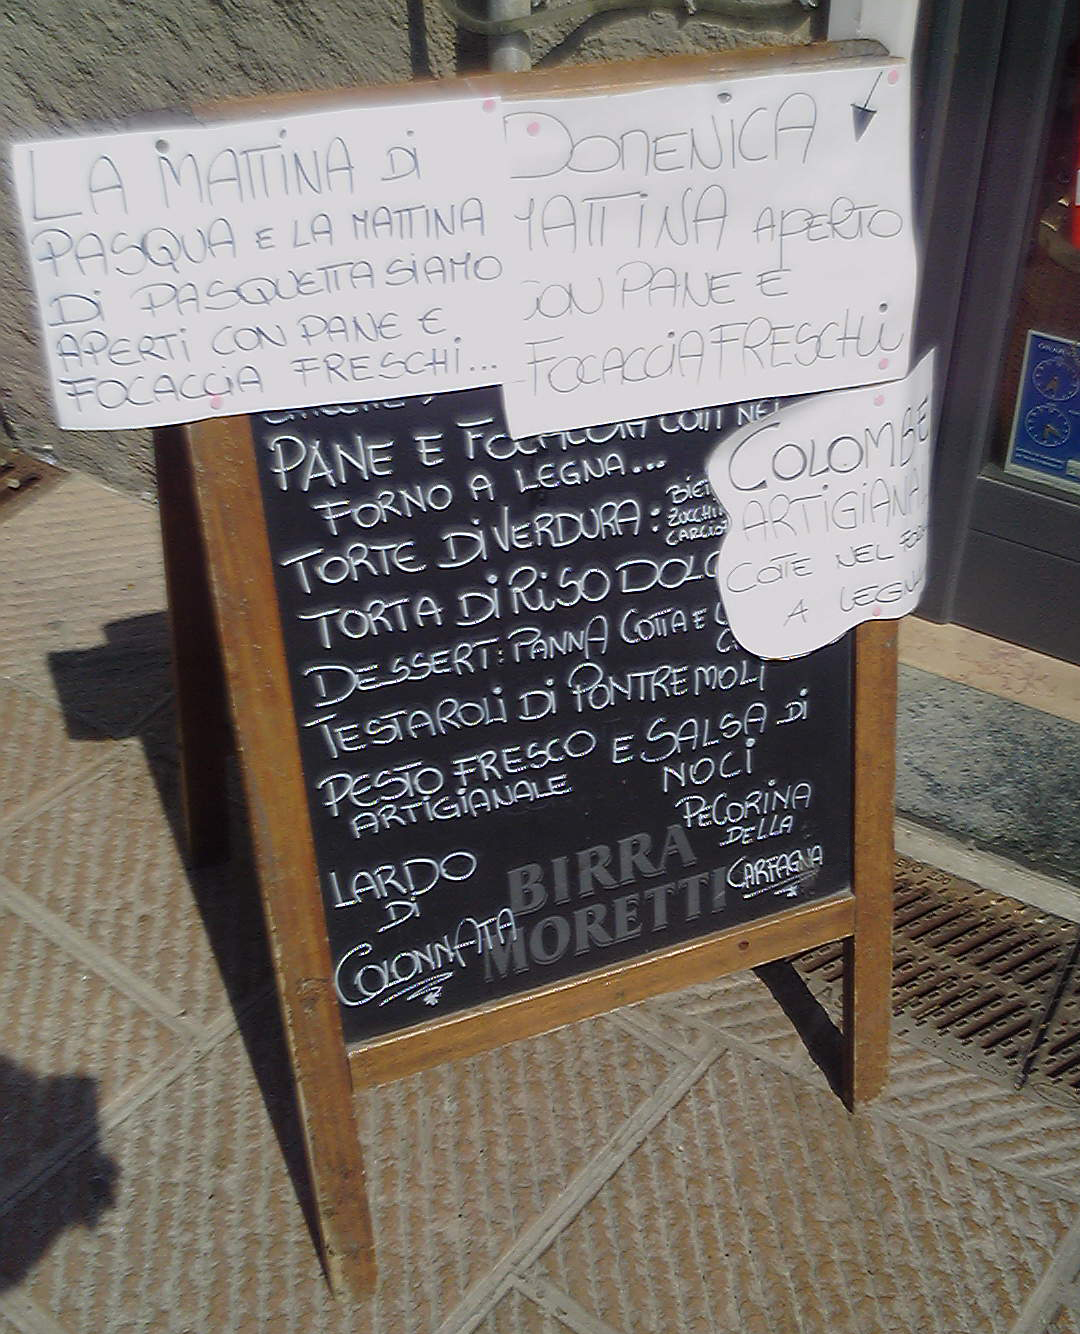 LA MATTINA DI
PASQUA E LA MATTINA
DI PASQUETTA SIAMO
APERTI CON PANE E
FOCACCIA FRESCHI...
DOMENICA
MATTINA APERTO
CON PANE E
FOCACCIA FRESCHI
COLOMBE
COTTE NEL
A LEGNA
PANE E FOCACCIA COTTI NEL
FORNO A LEGNA...
TORTE DI VERDURA:
TORTA DI RISO
DESSERT: PANNA COTTA E
TESTAROLI DI PONTREMOLI
PESTO FRESCO E SALSA DI
ARTIGIANALE NOCI
PECORINA
DELLA
GARFAGNA
LARDO
DI
COLONNATA
BIRRA
MORETTI